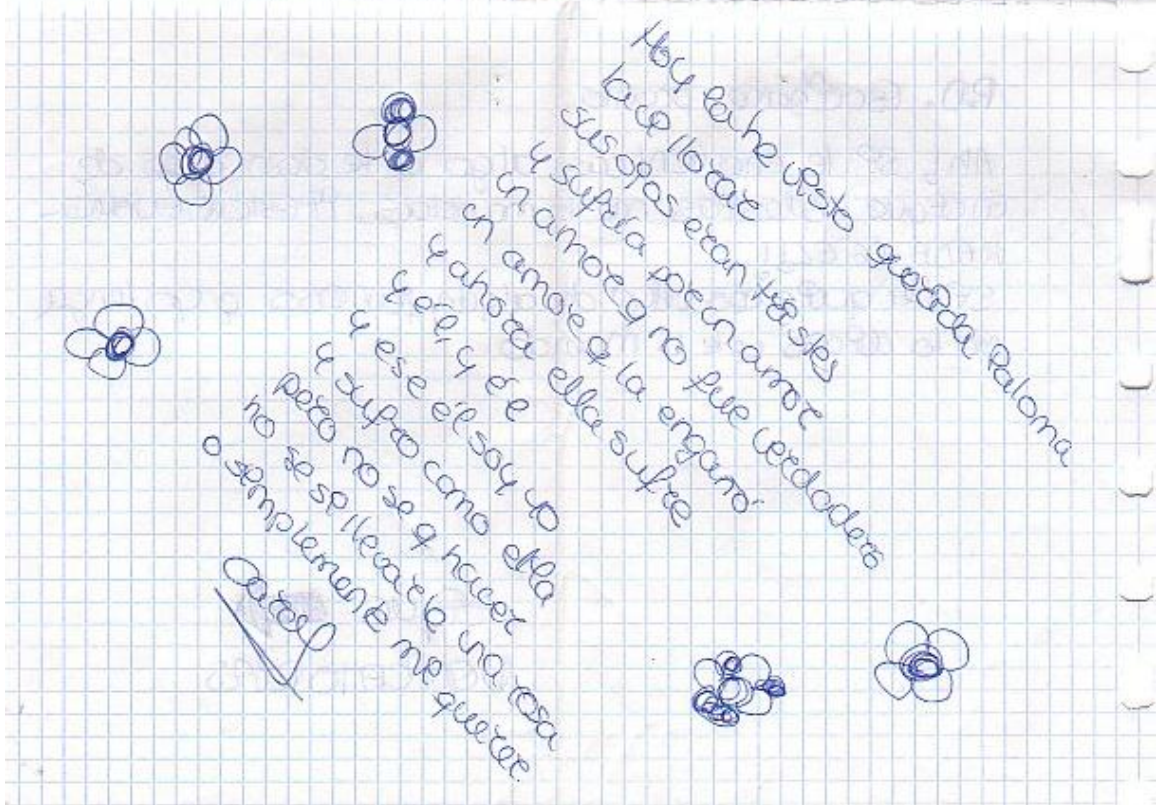 Hoy la he visto querida Paloma
la vi llorar
sus ojos eran tristes
y sufría por un amor
un amor q no fue verdadero
un amor q la engañó
y ahora ella sufre
y él, y él
y ese él soy yo
y sufro como ella
pero no se q hacer
no se si llevarle una rosa
o semplemente me querer.
Carol